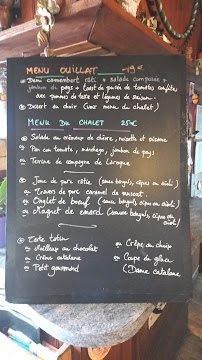 MENU OUILLAT — 19€
Demi camembert rôti + salade composée +
jambon de pays + toast de purée de tomates confites
avec pommes de terre et légumes de saison.
Dessert au choix (voir menu du chalet)
MENU DU CHALET 25€
Salade au crémeux de chèvre, noisette et pesto
Pan con tomate, manchego, jambon de pays
Terrine de campagne de Laroque
Joue de porc rôtie
Travers de porc caramel de muscat.
Onglet de boeuf (sauce banyuls, cèpes ou aïoli)
Magret de canard (sauce banyuls, cèpes ou
aïoli)
Tarte tatin
ou Moelleux au chocolat
ou Crème catalane
ou Petit gourmand
ou Crêpe au choix
ou Coupe du glacier
(Dame catalane